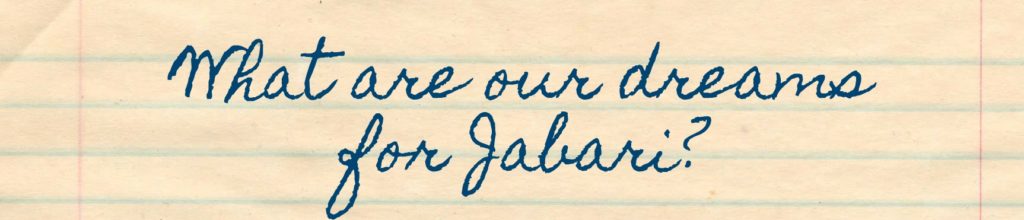 What are our dreams
for Jabari?